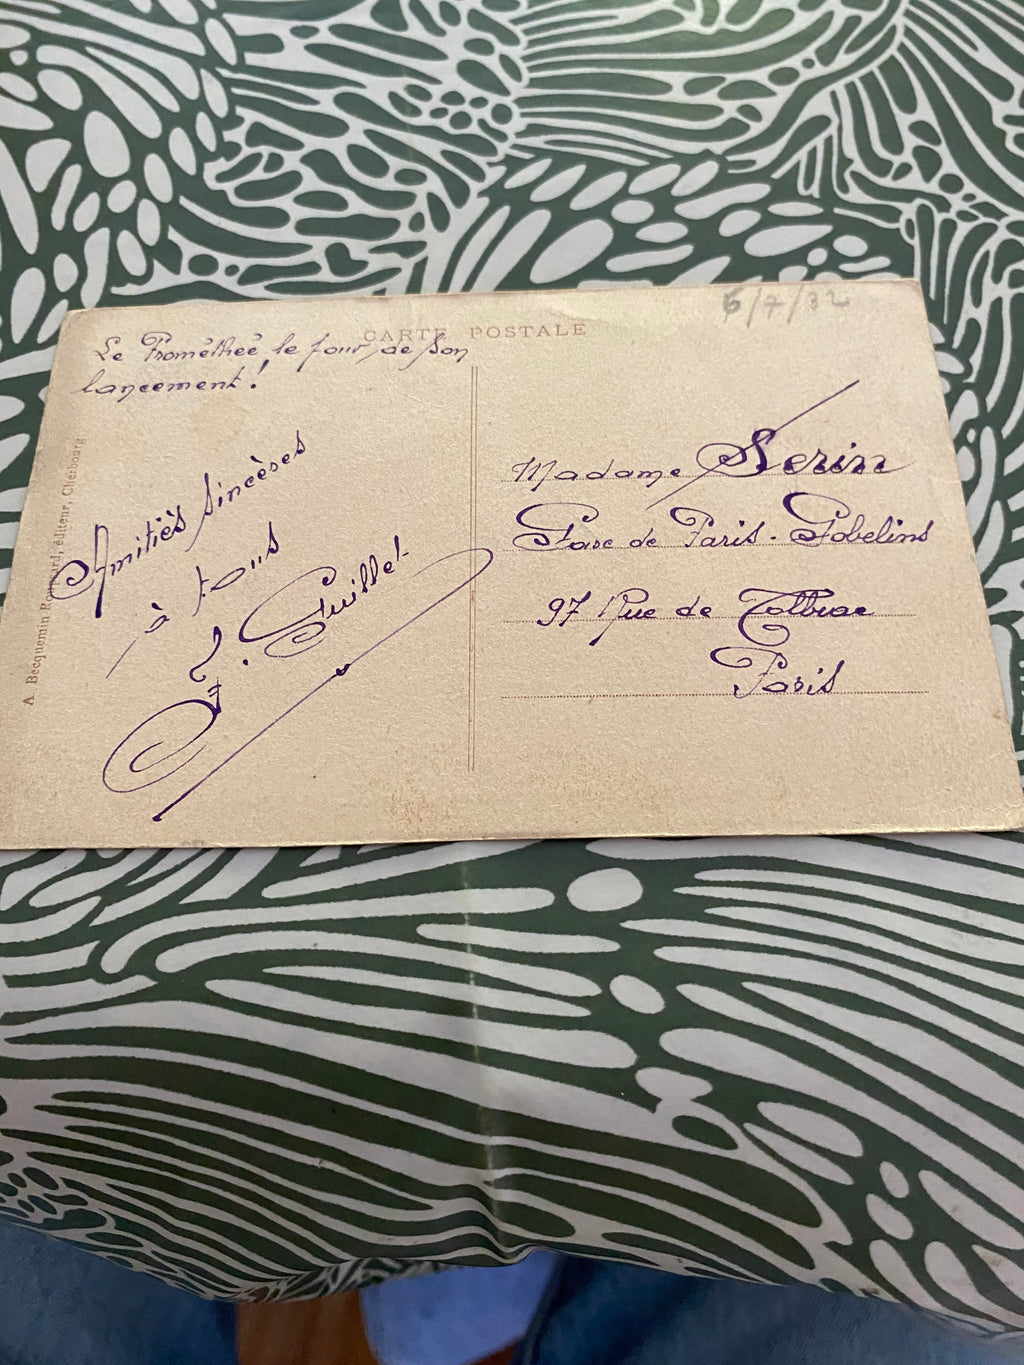 6/7/32
CARTE POSTALE
Le Prométhée le jour de son
lancement !
Amitiés sincères
à tous
Guillet
Madame Serin
Gare de Paris - Gobelins
97 Rue de Tolbiac
Paris
A Becquemin éditeur, Cherbourg